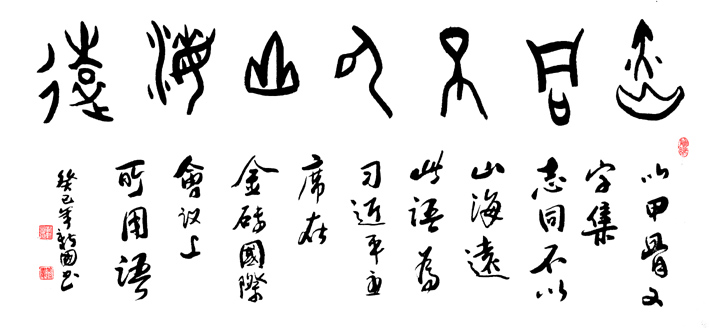 志同不以山海遠
以甲骨文
字集
志同不以
山海遠
此語為
习近平主
席在
金砖國際
會议上
所用语
癸巳年新國书